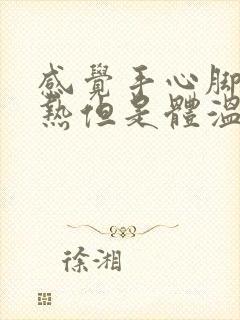 感覺手心腳
熱但是體溫
徐湘